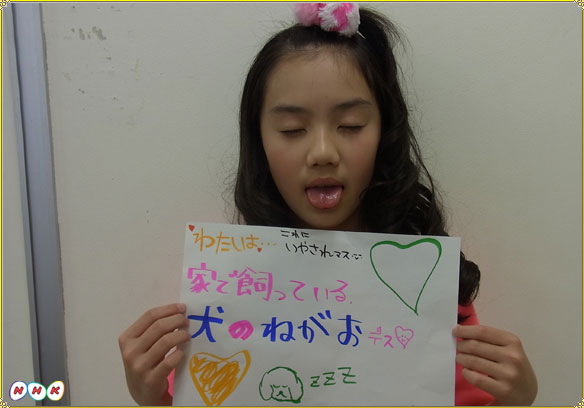 わたしは…
これに
いやされマス
家で飼っている
犬のねがお デス
ZZZ
NHK